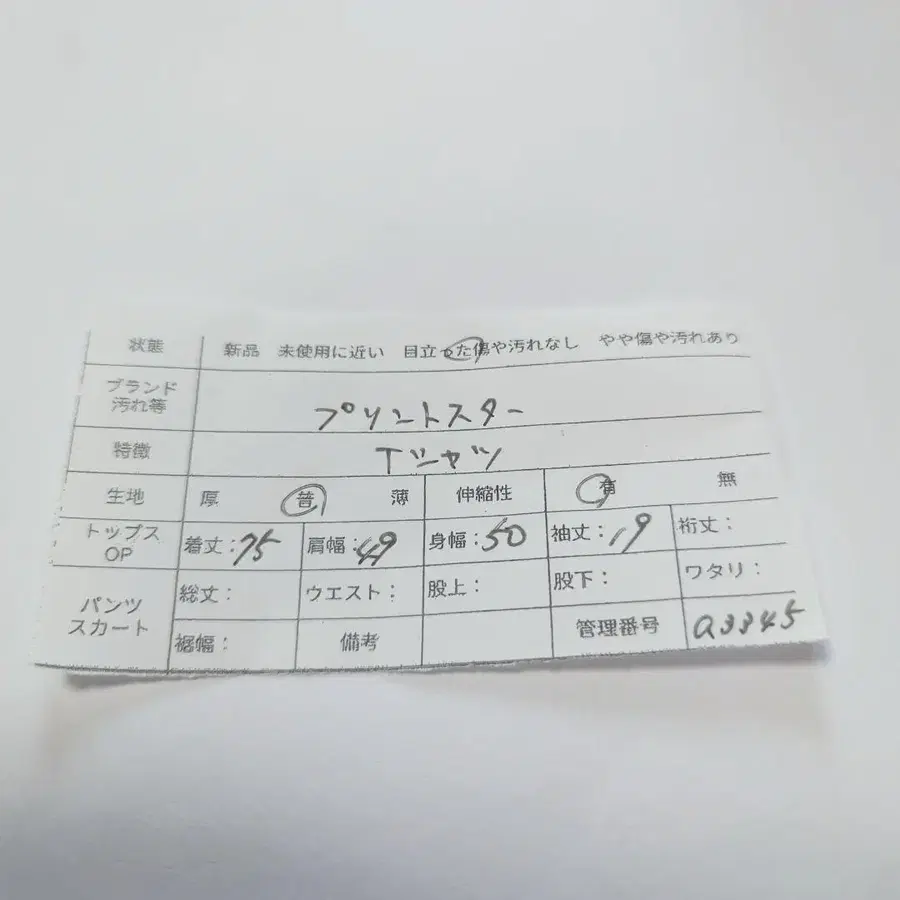 状態 新品 未使用に近い 目立った傷や汚れなし やや傷や汚れあり
ブランド
汚れ等 プリントスター
特徴 Tシャツ
生地 厚 普 薄 伸縮性 有 無
トップス
OP 着丈:75 肩幅:49 身幅:50 袖丈:19 裄丈:
パンツ
スカート 総丈: ウエスト: 股上: 股下: ワタリ:
裾幅: 備考 管理番号 a3345